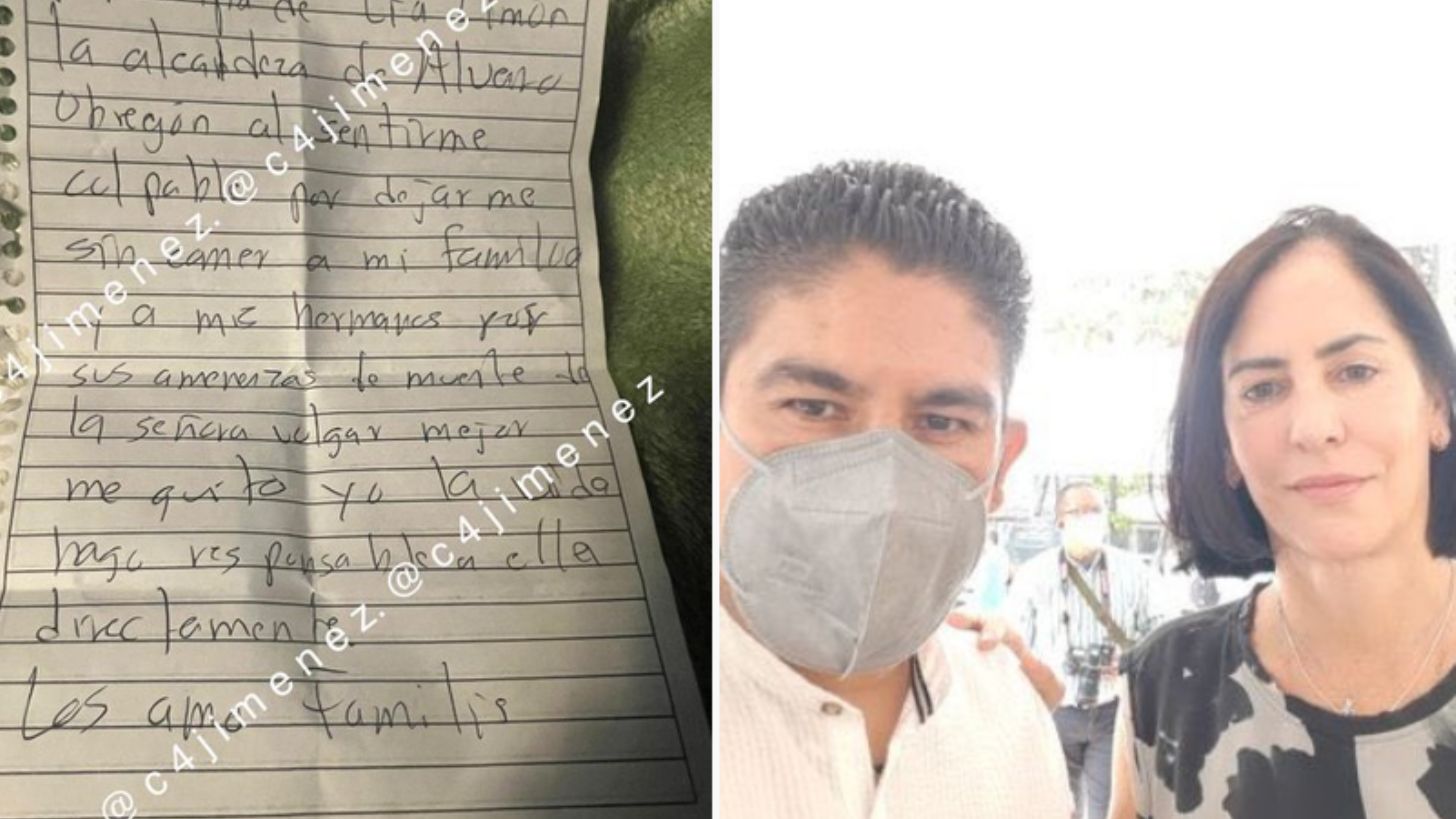 de Lia Limon
la alcaldeza de Alvaro
Obregón al sentirme
culpable por dejarme
sin comer a mi familia
y a mis hermanos por
sus amenenzas de muerte de
la señora vulgar mejor
me quito yo la vida
hago responsable a ella
directamente
Los amo familis
@c4jimenez. @c4jimenez
@c4jimenez. @c4jimenez